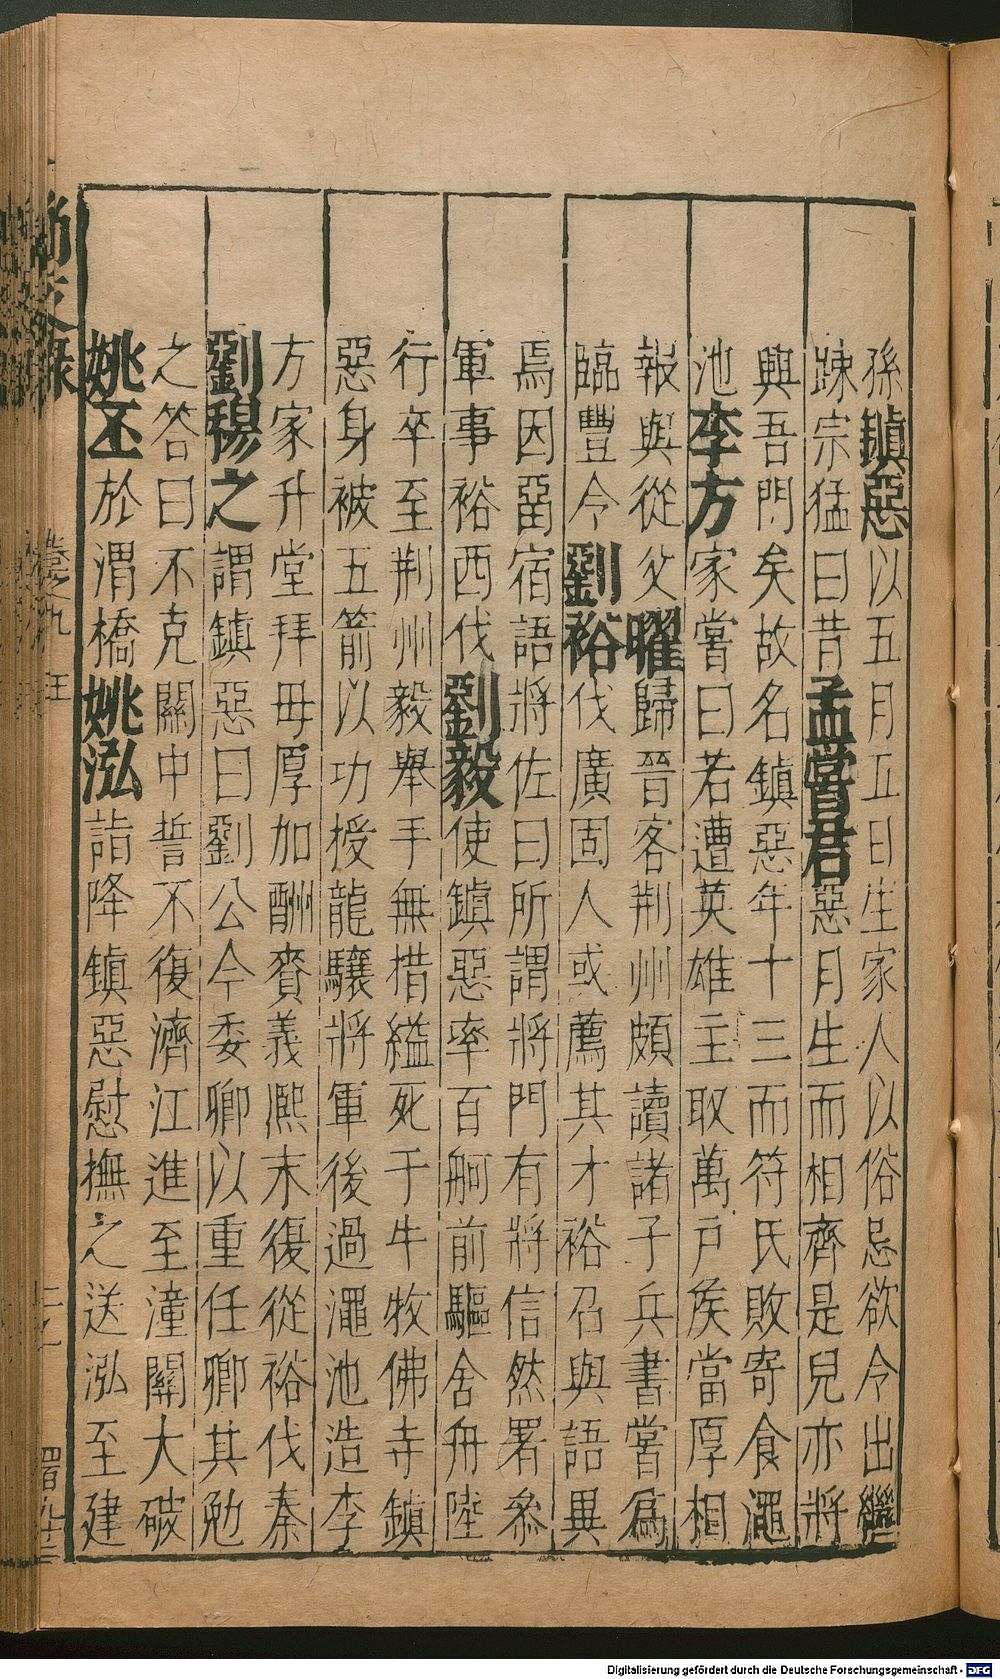 孫鎮惡以五月五日生家人以俗忌欲令出繼
踈宗猛曰昔孟嘗君惡月生而相齊是兒亦將
興吾門矣故名鎮惡年十三而符氏敗寄食澠
池李方家嘗曰若遭英雄主取萬戶矦當厚相
報與從父曜歸晉客荆州頗讀諸子兵書嘗爲
臨豐令劉裕伐廣固人或薦其才裕召與語異
焉因畱宿語將佐曰所謂將門有將信然署叅
軍事裕西伐劉毅使鎮惡率百舸前驅舍舟陸
行卒至荆州毅舉手無措縊死于牛牧佛寺鎮
惡身被五箭以功授龍驤將軍後過澠池造李
方家升堂拜毋厚加酬賚義熈末復從裕伐秦
劉穆之謂鎮惡曰劉公今委卿以重任卿其勉
之答曰不克關中誓不復濟江進至潼關大破
姚丕於渭橋姚泓詣降鎮惡慰撫之送泓至建
卷之九 王
Digitalisierung gefördert durch die Deutsche Forschungsgemeinschaft - DFG